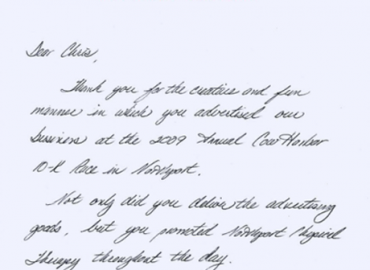 Dear Chris,
Thank you for the creative and fun
manner in which you advertised our
business at the 2009 Annual Cow Harbor
10-K Race in Northport.
Not only did you deliver the advertising
goods, but you promoted Northport Physical
Therapy throughout the day.